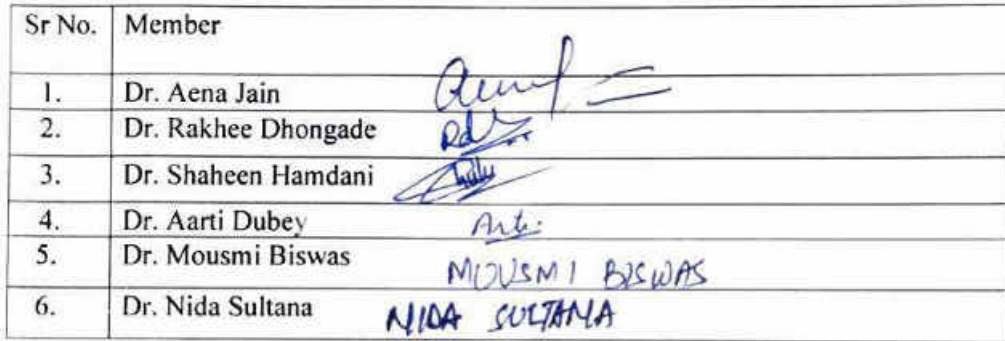 Sr No. Member
1. Dr. Aena Jain
2. Dr. Rakhee Dhongade
3. Dr. Shaheen Hamdani
4. Dr. Aarti Dubey Arti
5. Dr. Mousmi Biswas MOUSMI BISWAS
6. Dr. Nida Sultana NIDA SULTANA